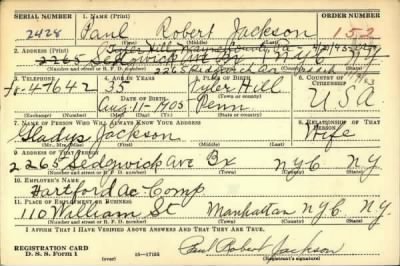 SERIAL NUMBER 1. NAME (Print) ORDER NUMBER
2428 Paul Robert Jackson 152
(First) (Middle) (Last)
Tyler Hill, Wayne County, Pa
2. ADDRESS (Print)
2265 Sedgwick Ave Bx N.Y.C. N.Y.
2265 Sedgwick Av
(Number and street or R. F. D. number) (Town) (County) (State)
3. TELEPHONE 4. AGE IN YEARS 5. PLACE OF BIRTH 6. COUNTRY OF CITIZENSHIP
47642 35 Tyler Hill
DATE OF BIRTH (Town or county)
Aug 11 1905 Penn USA
(Exchange) (Number) (Mo.) (Day) (Yr.) (State or country)
7. NAME OF PERSON WHO WILL ALWAYS KNOW YOUR ADDRESS 8. RELATIONSHIP OF THAT PERSON
Gladys Jackson Wife
(Mr., Mrs., Miss) (First) (Middle) (Last)
9. ADDRESS OF THAT PERSON
2265 Sedgwick Ave Bx N.Y.C. N.Y.
(Number and street or R. F. D. number) (Town) (County) (State)
10. EMPLOYER'S NAME
Hartford Ac Comp
11. PLACE OF EMPLOYMENT OR BUSINESS
110 William St Manhattan N.Y.C. N.Y.
(Number and street or R. F. D. number) (Town) (County) (State)
I AFFIRM THAT I HAVE VERIFIED ABOVE ANSWERS AND THAT THEY ARE TRUE.
REGISTRATION CARD
D. S. S. Form 1 16—17105 Paul Robert Jackson
(Registrant's signature)